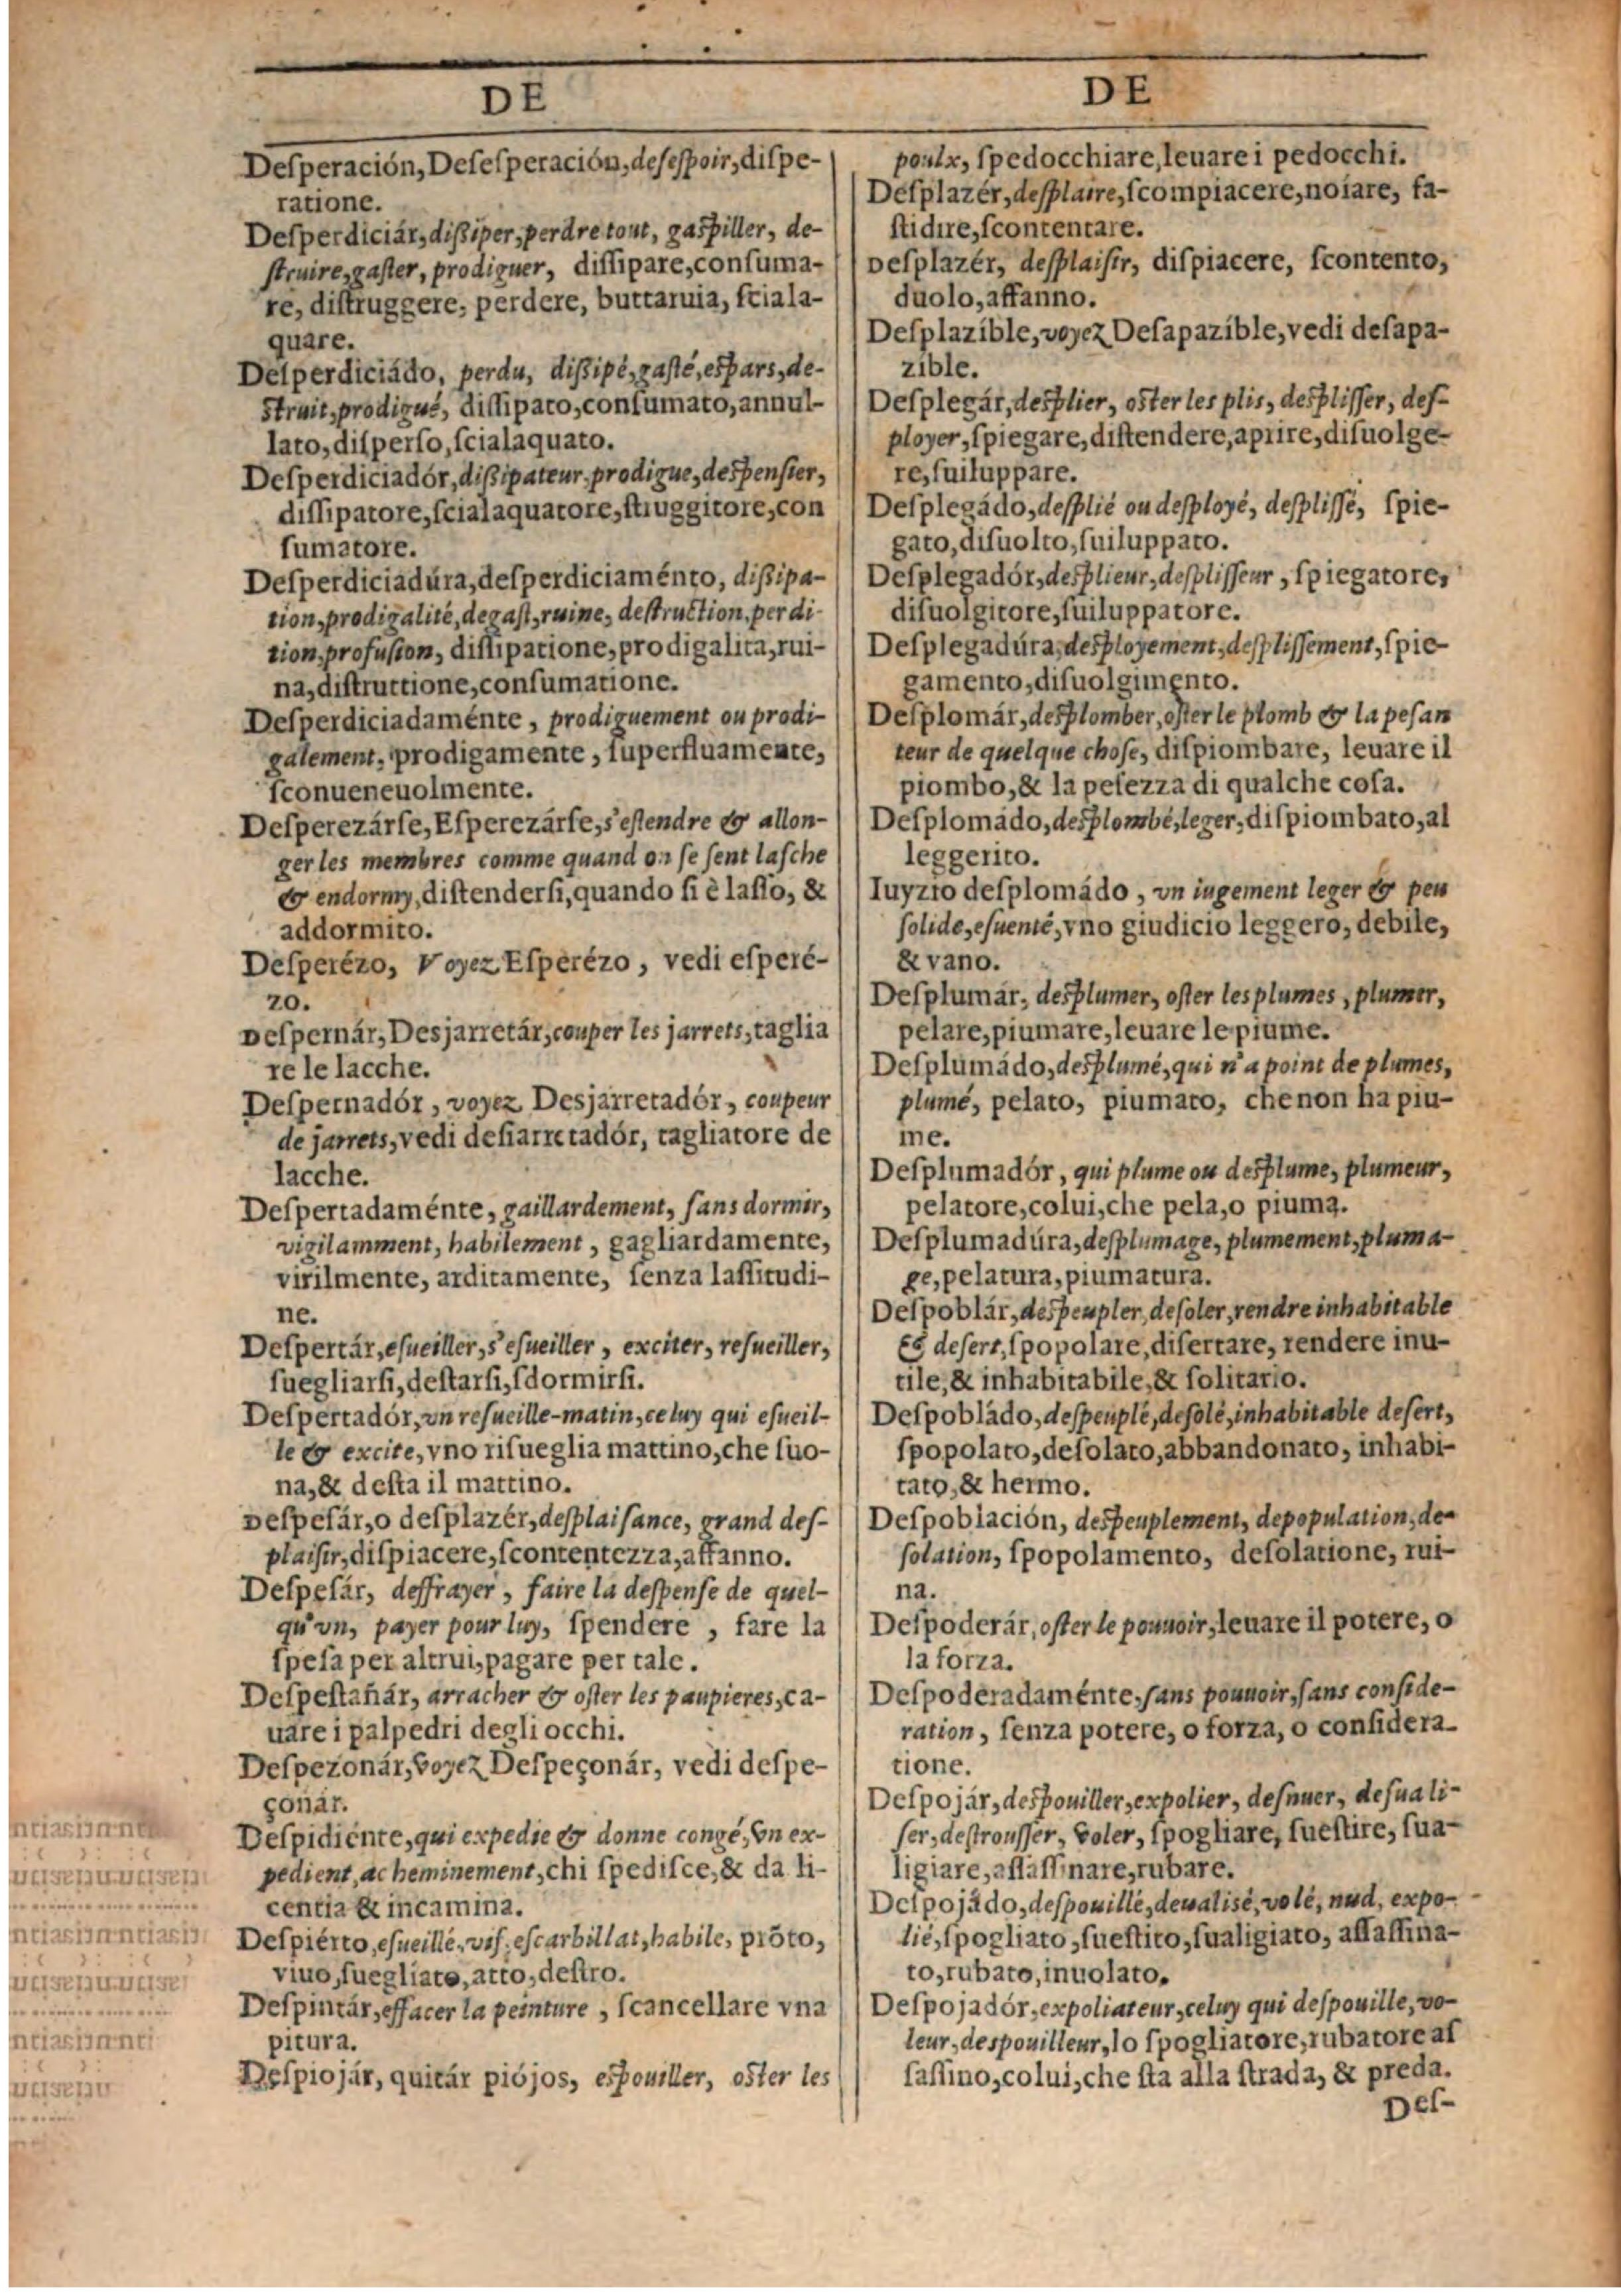 DE
Deſperación, Deſeſperación, deſeſpoir, diſpe-
ratione.
Deſperdiciár, dißiper, perdre tout, gaſpiller, de-
ſtruire, gaſter, prodiguer, diſſipare, conſuma-
re, diſtruggere, perdere, buttaruia, ſciala-
quare.
Deſperdiciádo, perdu, dißipé, gaſté, eſpars, de-
ſtruit, prodigué, diſſipato, conſumato, annul-
lato, diſperſo, ſcialaquato.
Deſperdiciadór, dißipateur, prodigue, deſpenſier,
diſſipatore, ſcialaquatore, ſtruggitore, con
ſumatore.
Deſperdiciadúra, deſperdiciaménto, dißipa-
tion, prodigalité, degaſt, ruine, deſtruction, perdi-
tion, profuſion, diſſipatione, prodigalita, rui-
na, diſtruttione, conſumatione.
Deſperdiciadaménte, prodiguement ou prodi-
galement, prodigamente, ſuperfluamente,
ſconueneuolmente.
Deſperezárſe, Eſperezárſe, s'eſtendre & allon-
ger les membres comme quand on ſe ſent laſche
& endormy, diſtenderſi, quando ſi è laſſo, &
addormito.
Deſperézo, Voyez Eſperézo, vedi eſperé-
zo.
Deſpernár, Desjarretár, couper les jarrets, taglia
re le lacche.
Deſpernadór, voyez Desjarretadór, coupeur
de jarrets, vedi deſiarretadór, tagliatore de
lacche.
Deſpertadaménte, gaillardement, ſans dormir,
vigilamment, habilement, gagliardamente,
virilmente, arditamente, ſenza laſſitudi-
ne.
Deſpertár, eſueiller, s'eſueiller, exciter, reſueiller,
ſuegliarſi, deſtarſi, ſdormirſi.
Deſpertadór, vn reſueille-matin, celuy qui eſueil-
le & excite, vno riſueglia mattino, che ſuo-
na, & deſta il mattino.
Deſpeſár, o deſplazér, deſplaiſance, grand deſ-
plaiſir, diſpiacere, ſcontentezza, affanno.
Deſpeſár, deffrayer, faire la deſpenſe de quel-
qu'vn, payer pour luy, ſpendere, fare la
ſpeſa per altrui, pagare per tale.
Deſpeſtañár, arracher & oſter les paupieres, ca-
uare i palpedri degli occhi.
Deſpezonár, voyez Deſpeçonár, vedi deſpe-
çonár.
Deſpidiénte, qui expedie & donne congé, vn ex-
pedient, acheminement, chi ſpediſce, & da li-
centia & incamina.
Deſpiérto, eſueillé, vif, eſcarbillat, habile, prõto,
viuo, ſuegliato, atto, deſtro.
Deſpintár, effacer la peinture, ſcancellare vna
pitura.
Deſpiojár, quitár piójos, eſpouiller, oſter les
DE
poulx, ſpedocchiare, leuare i pedocchi.
Deſplazér, deſplaire, ſcompiacere, noiare, fa-
ſtidire, ſcontentare.
Deſplazér, deſplaiſir, diſpiacere, ſcontento,
duolo, affanno.
Deſplazíble, voyez Deſapazíble, vedi deſapa-
zíble.
Deſplegár, deſplier, oſter les plis, deſpliſſer, deſ-
ployer, ſpiegare, diſtendere, aprire, diſuolge-
re, ſuiluppare.
Deſplegádo, deſplié ou deſployé, deſpliſſé, ſpie-
gato, diſuolto, ſuiluppato.
Deſplegadór, deſplieur, deſpliſſeur, ſpiegatore,
diſuolgitore, ſuiluppatore.
Deſplegadúra, deſployement, deſpliſſement, ſpie-
gamento, diſuolgimento.
Deſplomár, deſplomber, oſter le plomb & la peſan
teur de quelque choſe, diſpiombare, leuare il
piombo, & la peſezza di qualche coſa.
Deſplomádo, deſplombé, leger, diſpiombato, al
leggerito.
Iuyzio deſplomádo, vn iugement leger & peu
ſolide, eſuenté, vno giudicio leggero, debile,
& vano.
Deſplumár, deſplumer, oſter les plumes, plumer,
pelare, piumare, leuare le piume.
Deſplumádo, deſplumé, qui n'a point de plumes,
plumé, pelato, piumato, che non ha piu-
me.
Deſplumadór, qui plume ou deſplume, plumeur,
pelatore, colui, che pela, o piuma.
Deſplumadúra, deſplumage, plumement, pluma-
ge, pelatura, piumatura.
Deſpoblár, deſpeupler, deſoler, rendre inhabitable
& deſert, ſpopolare, diſertare, rendere inu-
tile, & inhabitabile, & ſolitario.
Deſpobládo, deſpeuplé, deſolé, inhabitable deſert,
ſpopolato, deſolato, abbandonato, inhabi-
tato, & hermo.
Deſpoblación, deſpeuplement, depopulation, de-
ſolation, ſpopolamento, deſolatione, rui-
na.
Deſpoderár, oſter le pouuoir, leuare il potere, o
la forza.
Deſpoderadaménte, ſans pouuoir, ſans conſide-
ration, ſenza potere, o forza, o conſidera-
tione.
Deſpojár, deſpouiller, expolier, deſnuer, deſuali-
ſer, deſtrouſſer, voler, ſpogliare, ſueſtire, ſua-
ligiare, aſſaſſinare, rubare.
Deſpojádo, deſpouillé, deualiſé, volé, nud, expo-
lié, ſpogliato, ſueſtito, ſualigiato, aſſaſſina-
to, rubato, inuolato.
Deſpojadór, expoliateur, celuy qui deſpouille, vo-
leur, deſpouilleur, lo ſpogliatore, rubatore aſ
ſaſſino, colui, che ſta alla ſtrada, & preda.
Deſ-